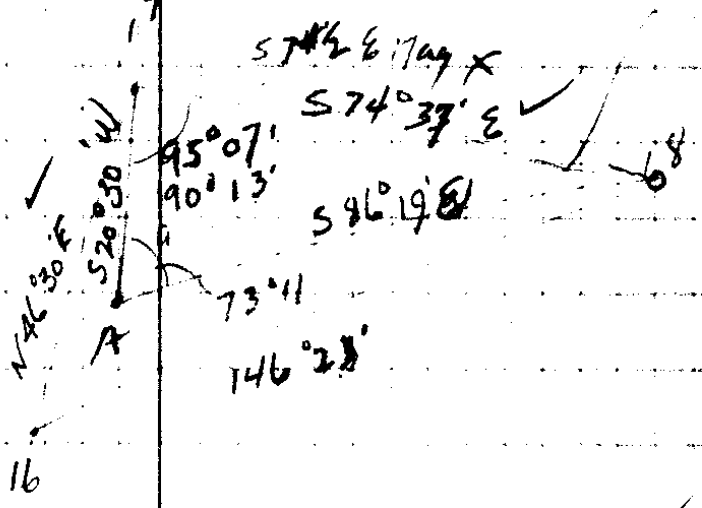 S 74°37' E
95°07'
90°13'
8
S 86°19' E
S20°30'W
N46°30'E
73°11
A
146°28'
16